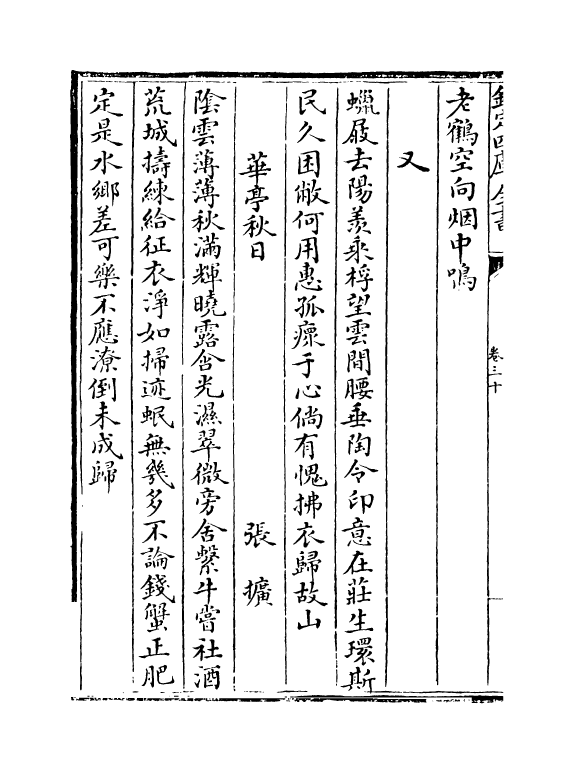 欽定四庫全書
卷三十
老鶴空向烟中鳴
又
蠟屐去陽羨乘桴望雲間腰垂陶令印意在莊生環斯
民久困敝何用惠孤瘝于心倘有愧拂衣歸故山
華亭秋日　張擴
陰雲薄薄秋滿輝曉露含光濕翠微旁舍繫牛嘗社酒
荒城擣練給征衣淨如掃迹蚊無幾多不論錢蟹正肥
定是水鄉差可樂不應潦倒未成歸